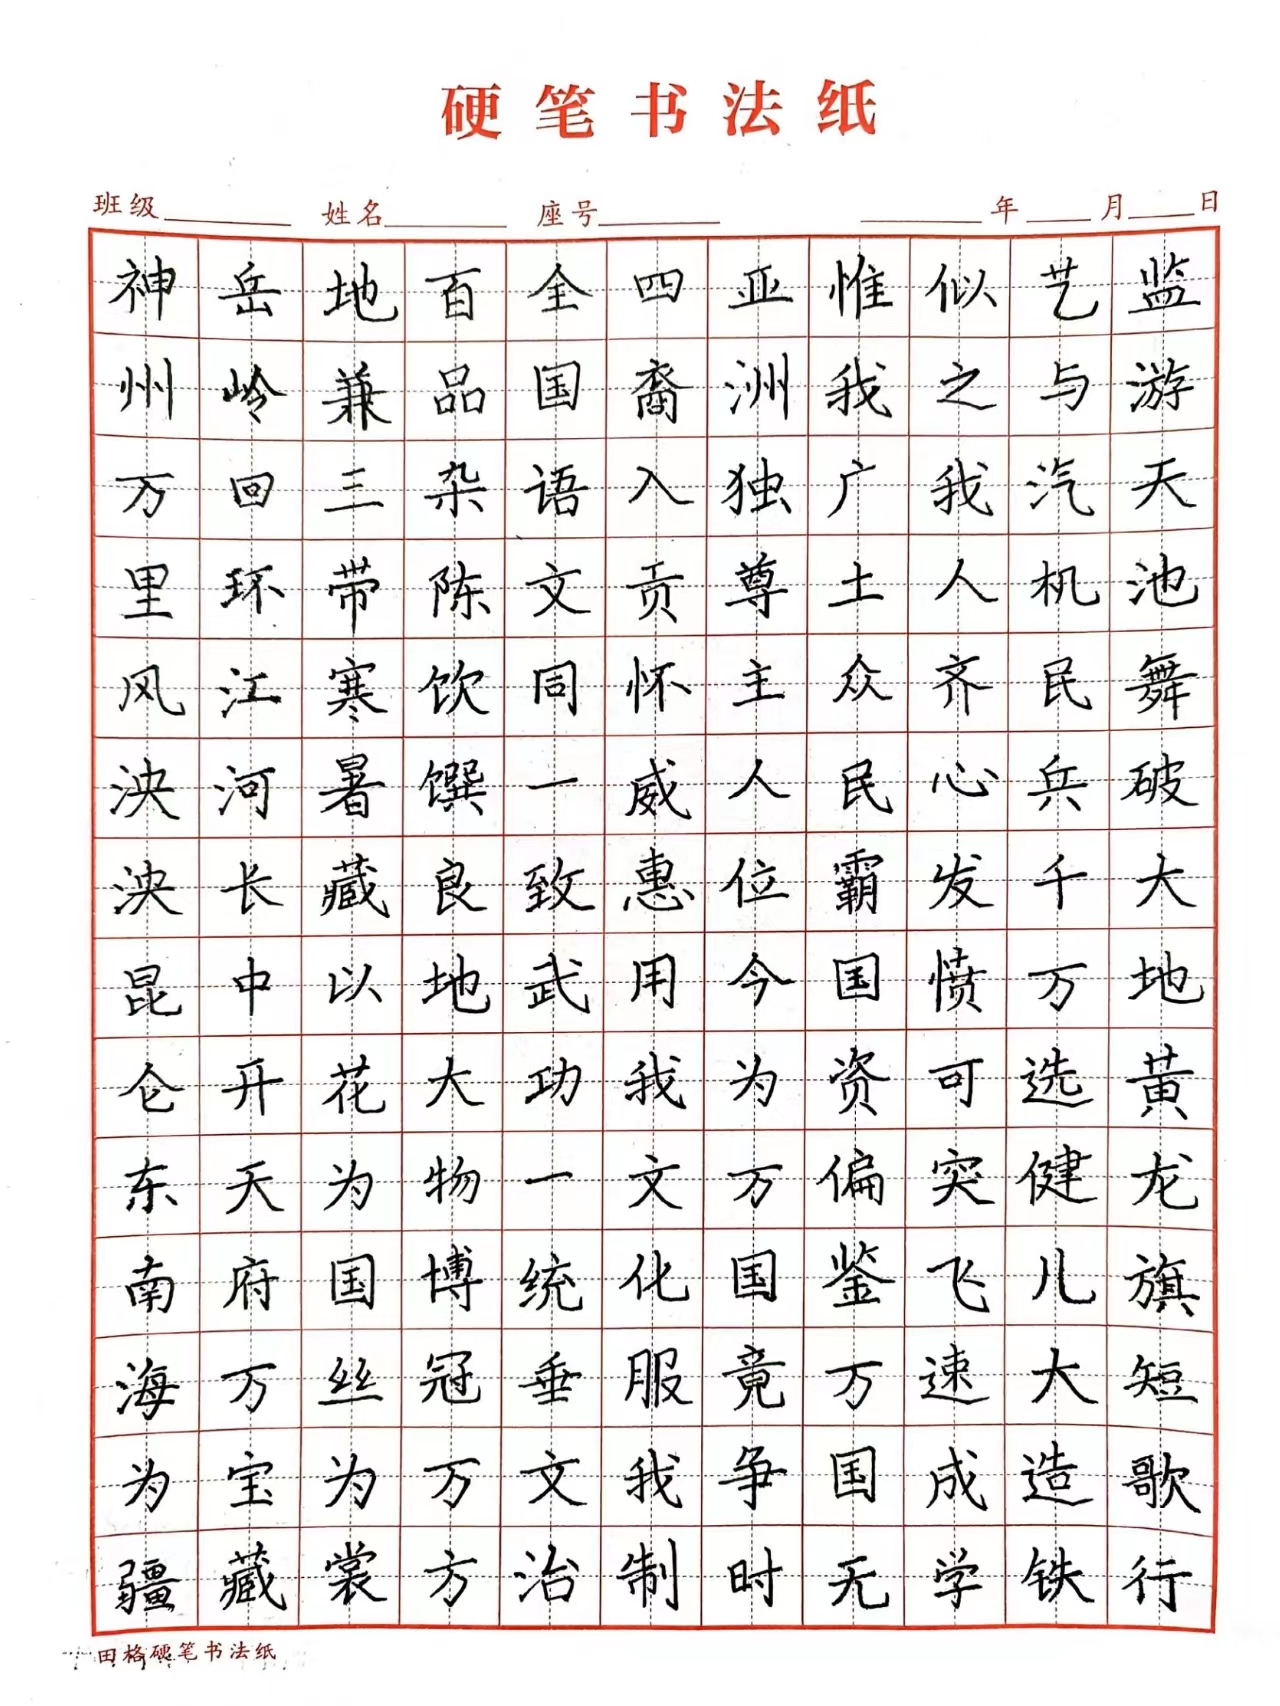 硬笔书法纸
班级 姓名 座号 年 月 日
神州万里风泱泱昆仑东南海为疆
岳岭回环江河长中开天府万宝藏
地兼三带寒暑藏以花为国丝为裳
百品杂陈饮馔良地大物博冠万方
全国语文同一致武功一统垂文治
四裔入贡怀威惠用我文化服我制
亚洲独尊主人位今为万国竟争时
惟我广土众民霸国资偏鉴万国无
似之我人齐心发愤可突飞速成学
艺与汽机民兵千万选健儿大造铁
监游天池舞破大地黄龙旗短歌行
田格硬笔书法纸